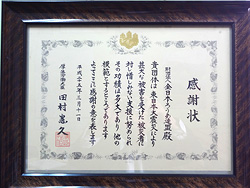 感謝状
財団法人全日本ろうあ連盟殿
貴団体は東日本大震災により
甚大な被害を受けた被災者に
対し惜しみない支援に努められ
その功績は多大であり他の
模範とするところであります
よってここに感謝の意を表します
平成二十五年三月十一日
厚生労働大臣
田村憲久